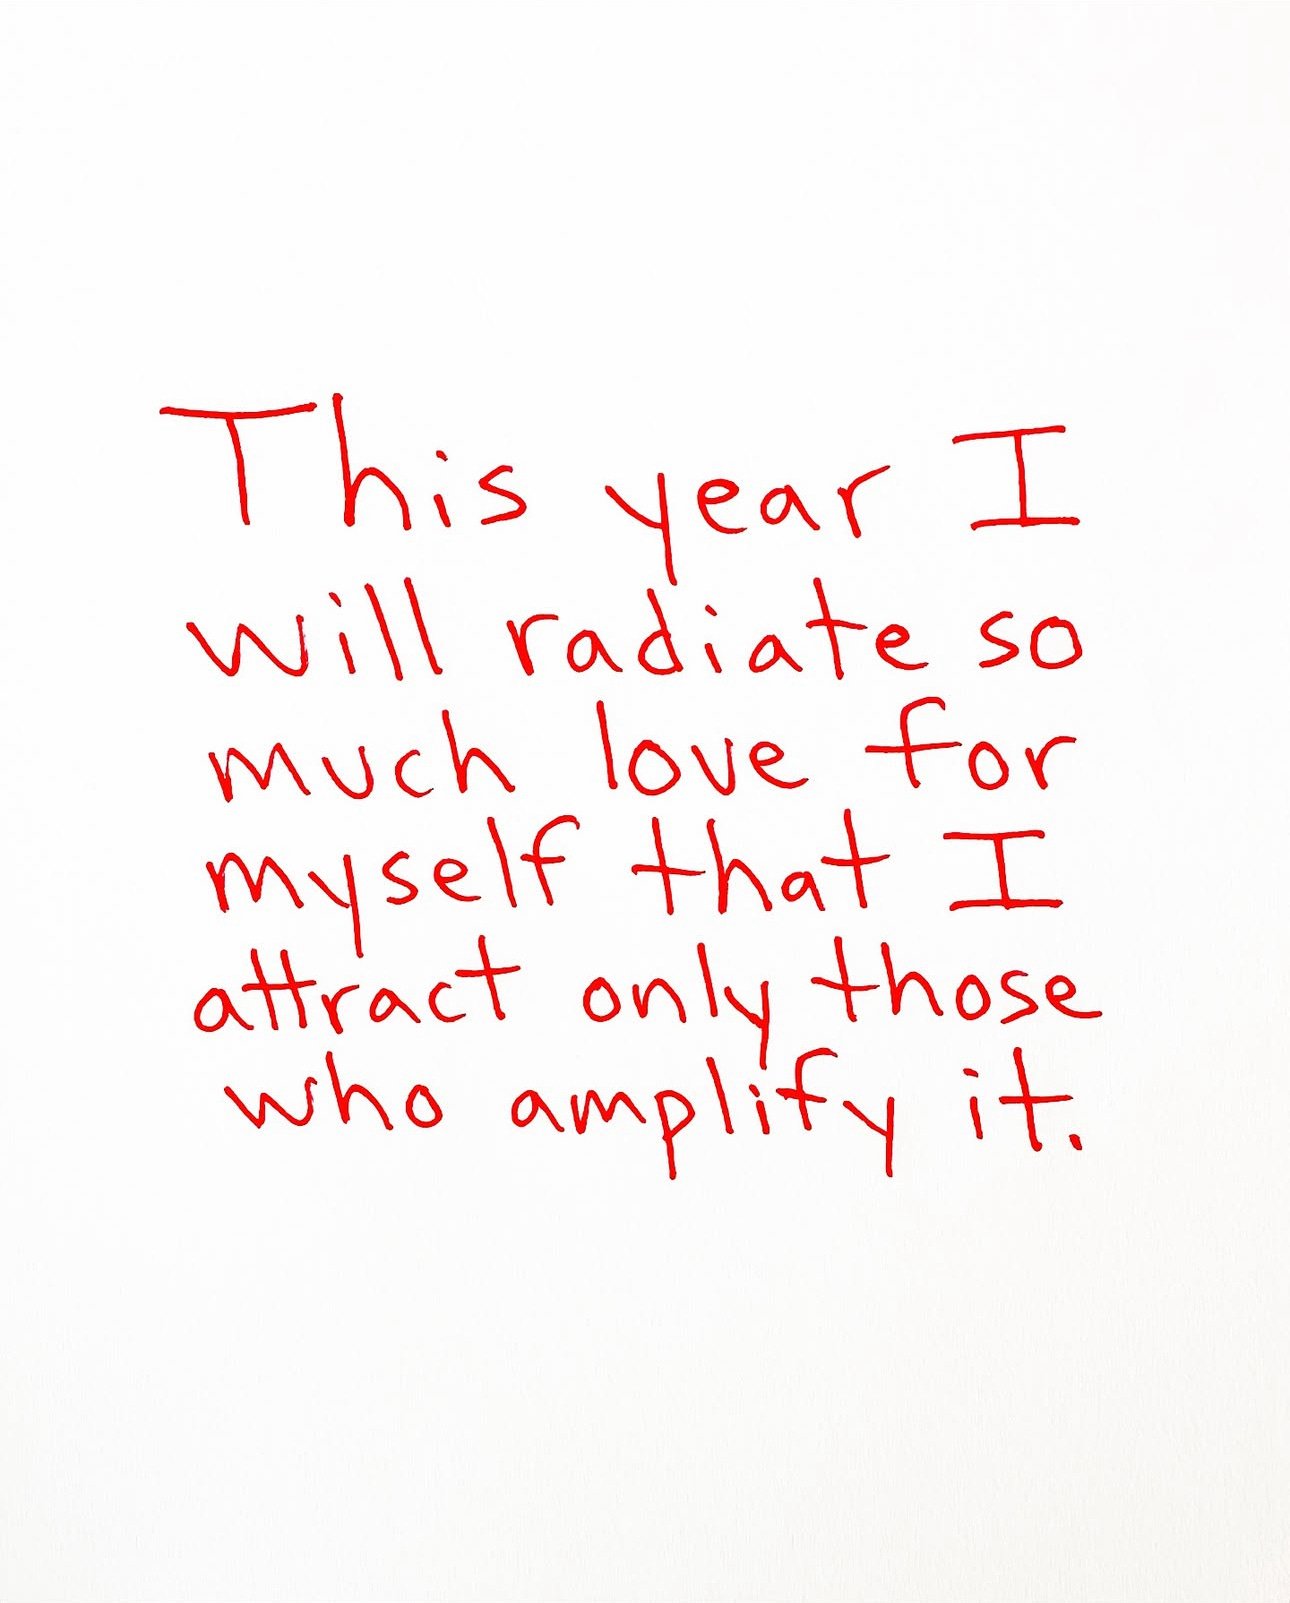 This year I
will radiate so
much love for
myself that I
attract only those
who amplify it.